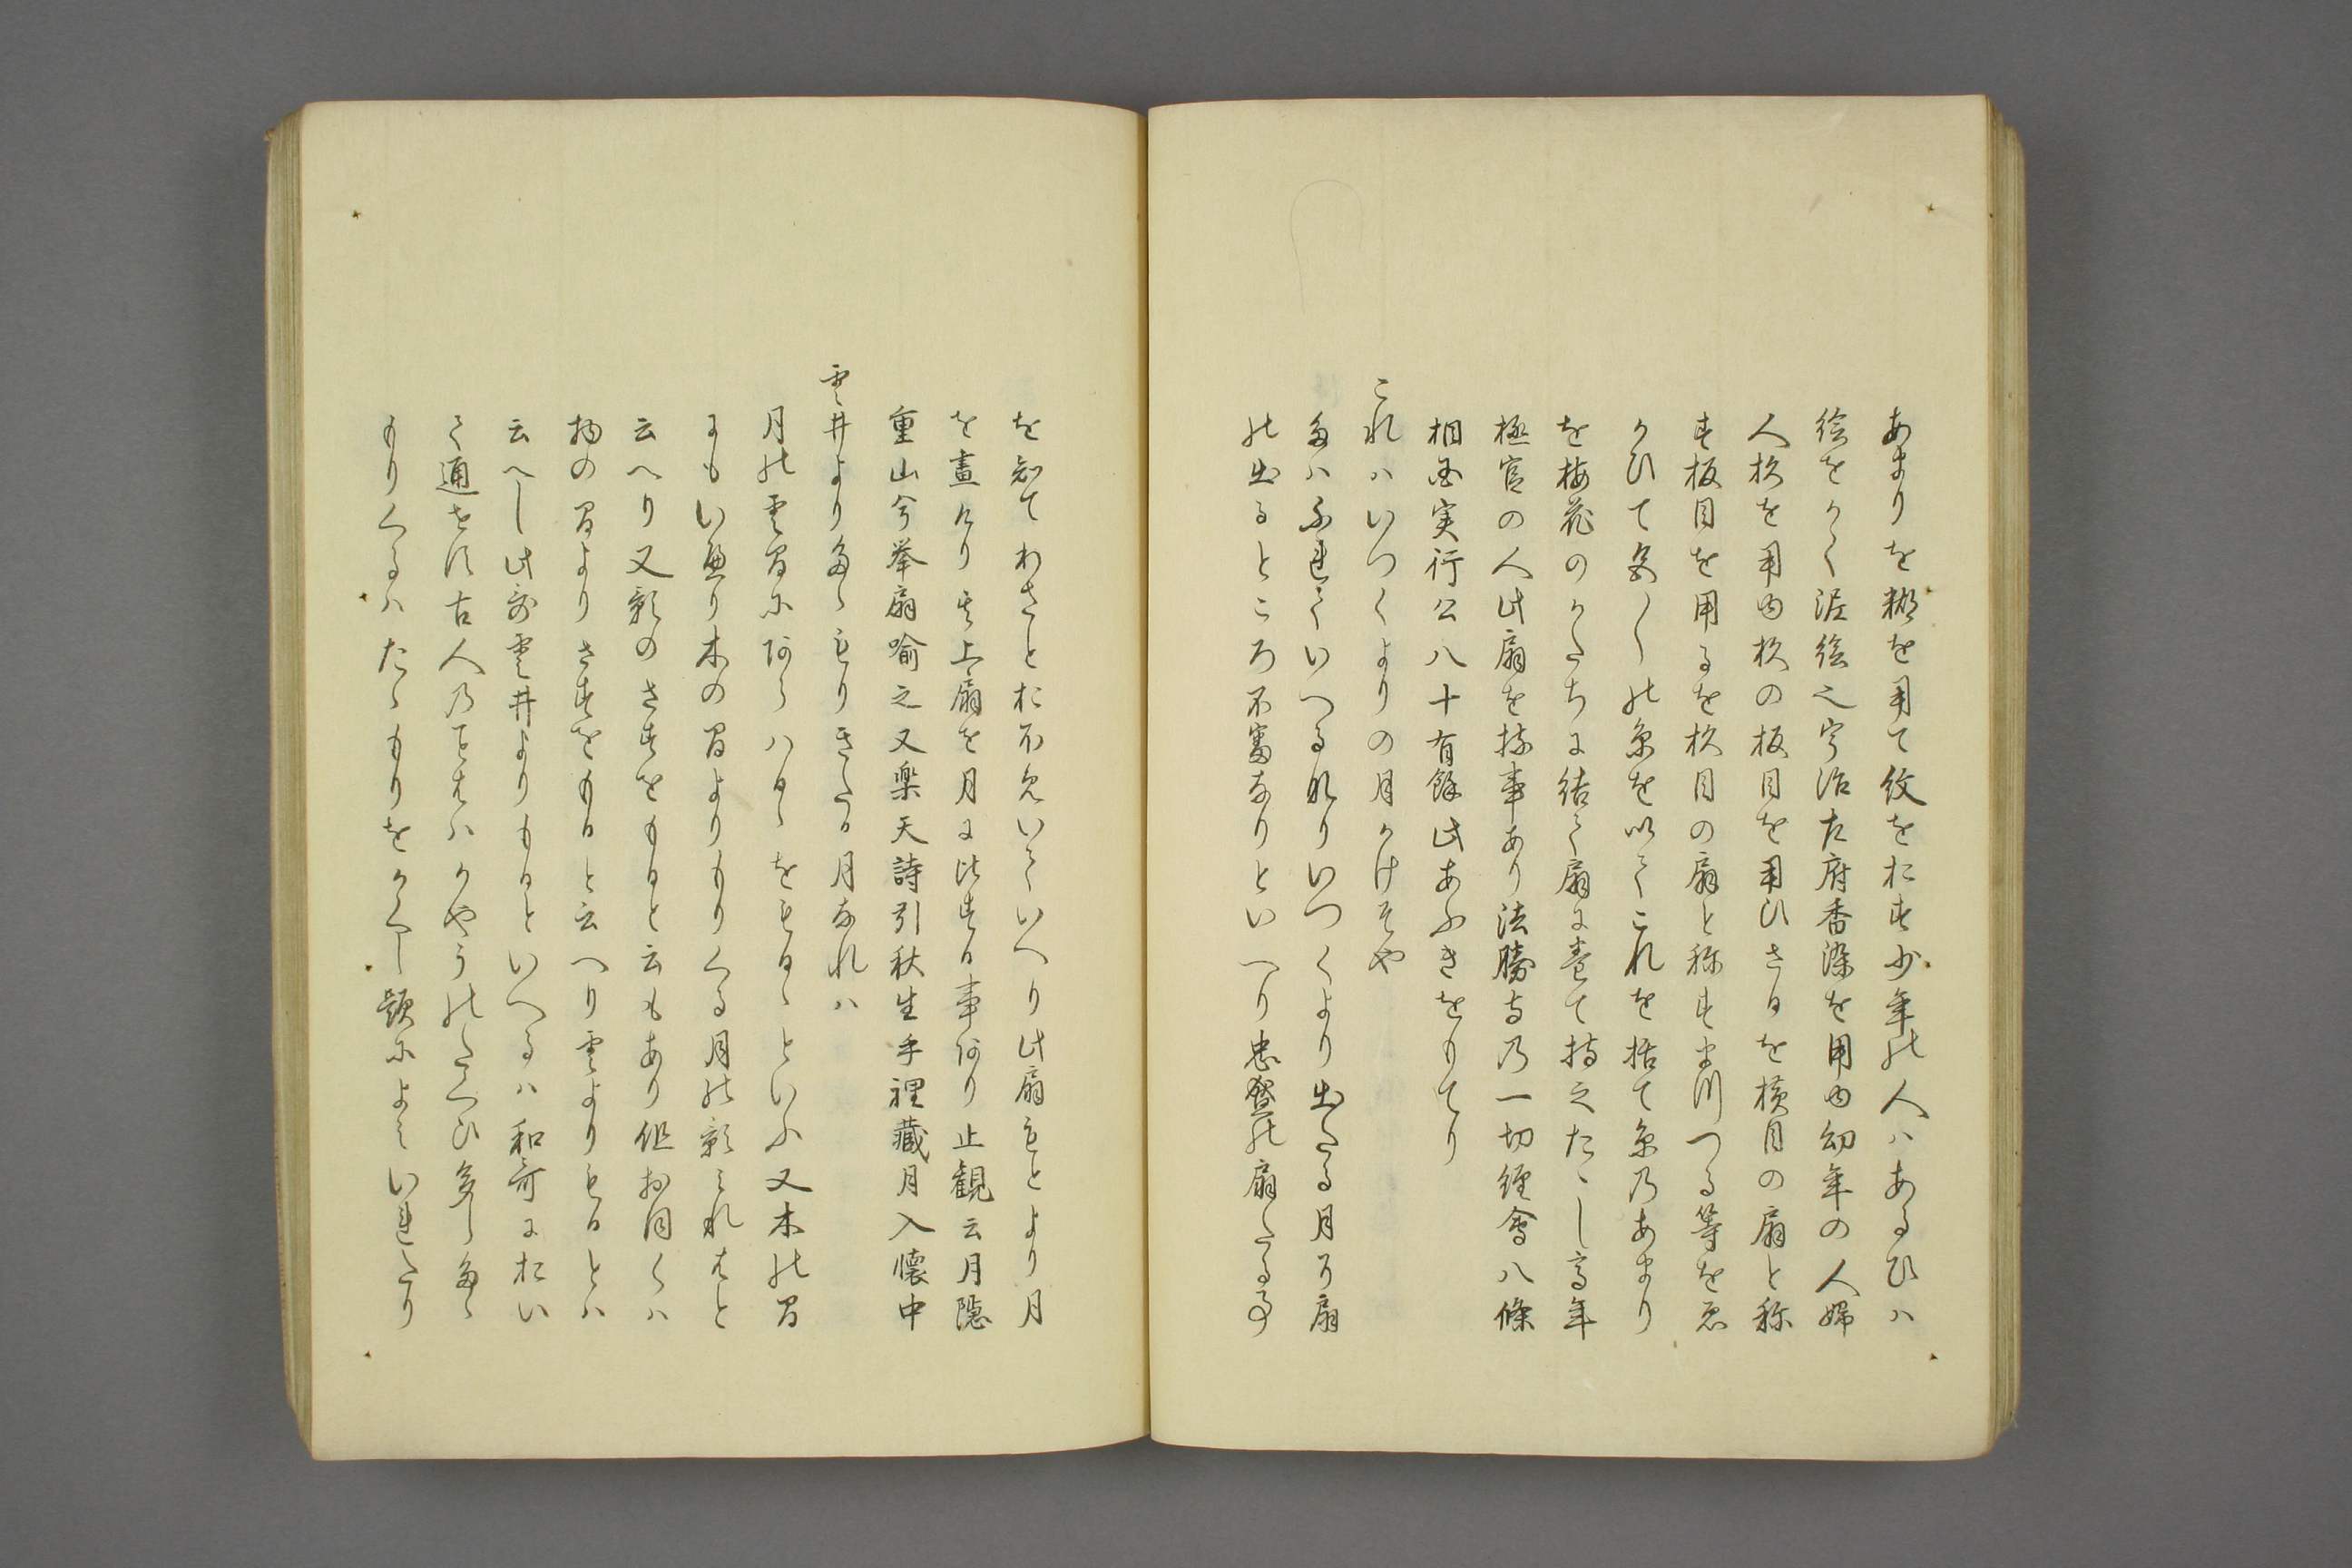 あまりを糊を用て紋をおす少年の人ハあるひハ
絵をかく泥絵之宇治左府香染を用ゆ幼年の人婦
人杉を用ゆ杉の板目を用ひさるを横目の扇と称
す板目を用るを杉目の扇と称すまつつる等をゑ
かひて色〻の糸を以てこれを括て糸乃あまり
を梅花のかたちに結て扇に巻て持之たゝし高年
極官の人此扇を持事あり法勝寺乃一切経會八條
相国実行公八十有餘此あふきをもてり
これハいつくよりの月かけそや
多ハふれていへるなりいつくより出たる月か扇
の出るところ不審なりといへり忠盛の扇たる事
を知てわさとおほめいていへり此扇もとより月
を畫けり其上扇を月に比する事あり止観云月隠
重山兮挙扇喩之又楽天詩引秋生手裡蔵月入懐中
雲井よりたゝもりきたる月なれハ
月の雲間にあらハるゝをもるゝといふ又木の間
にもいへり木の間よりもりくる月の影みれはと
云へり又影のさすをもると云もあり但おほくハ
物の間よりさすをもると云へり雲よりもるとハ
云へし此哥雲井よりもるといへるハ和哥におい
て通せす古人乃ことはハかやうのたくひ多したゝ
もりくるハたゝもりをかくし題によみいれたり